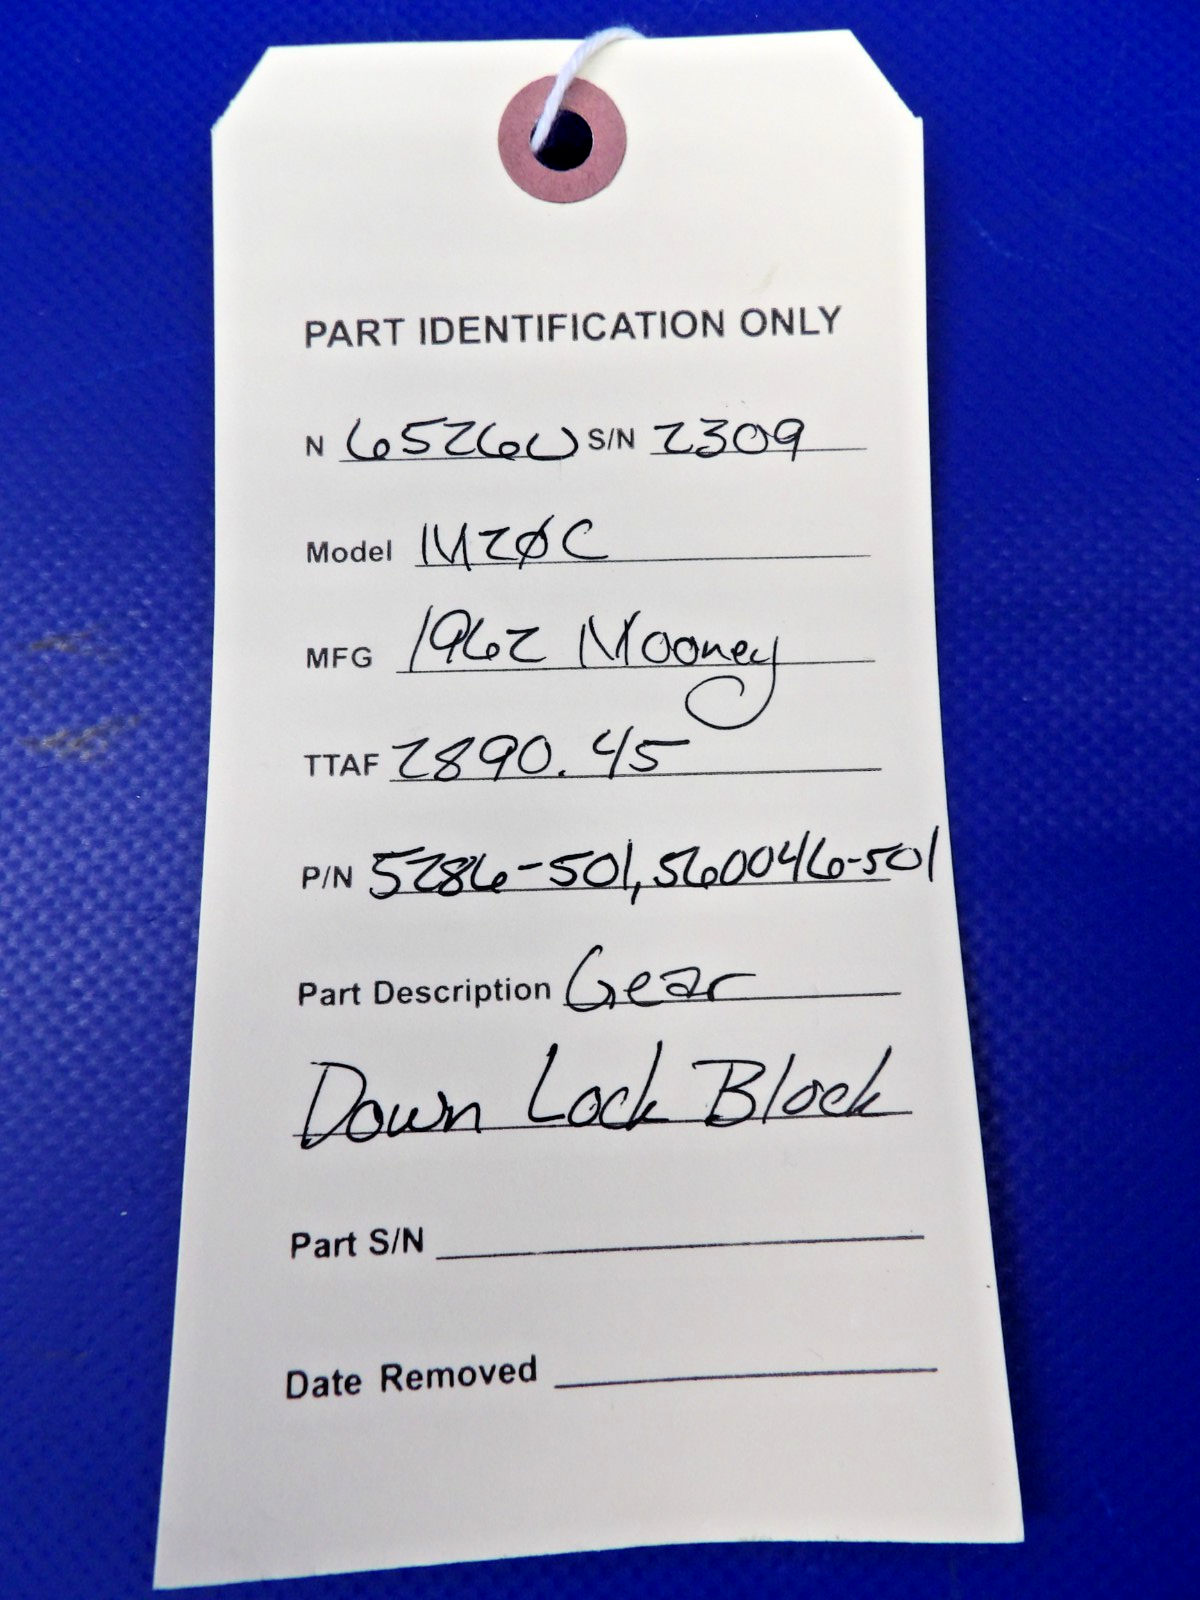 PART IDENTIFICATION ONLY
N 6526U S/N 2309
Model M20C
MFG 1962 Mooney
TTAF 2890.45
P/N 5286-501, 560046-501
Part Description Gear
Down Lock Block
Part S/N
Date Removed